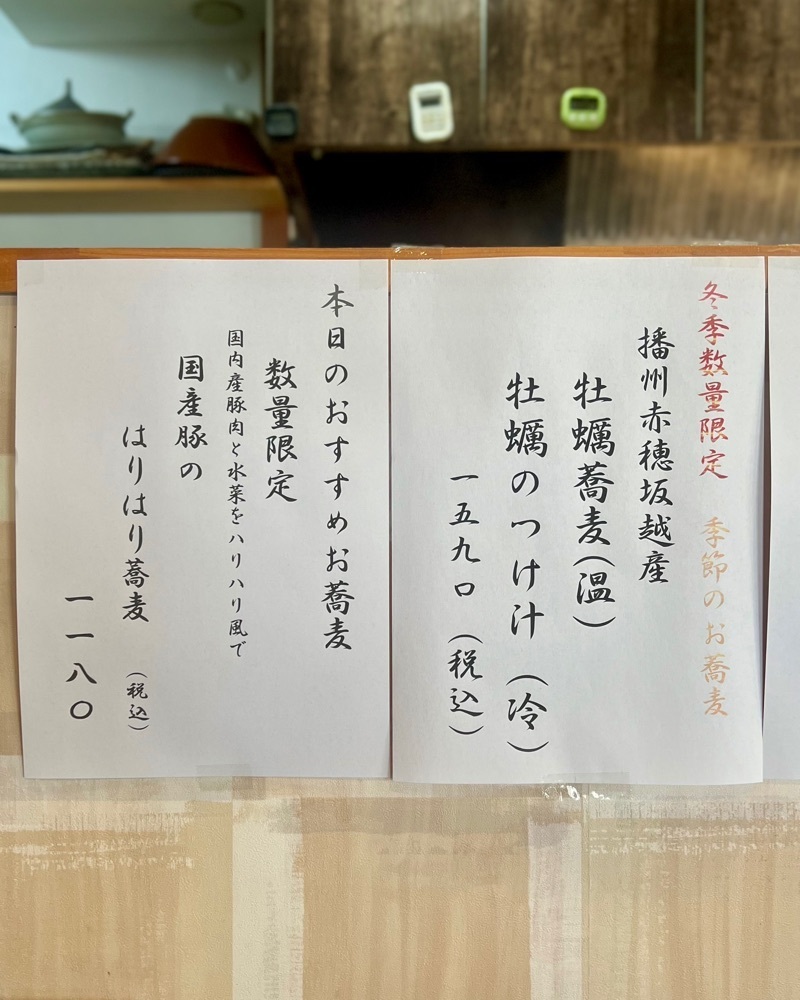 冬季数量限定　季節のお蕎麦
播州赤穂坂越産
牡蠣蕎麦(温)
牡蠣のつけ汁　(冷)
一五九〇　(税込)
本日のおすすめお蕎麦
数量限定
国内産豚肉と水菜をハリハリ風で
国産豚の
はりはり蕎麦　(税込)
一一八〇